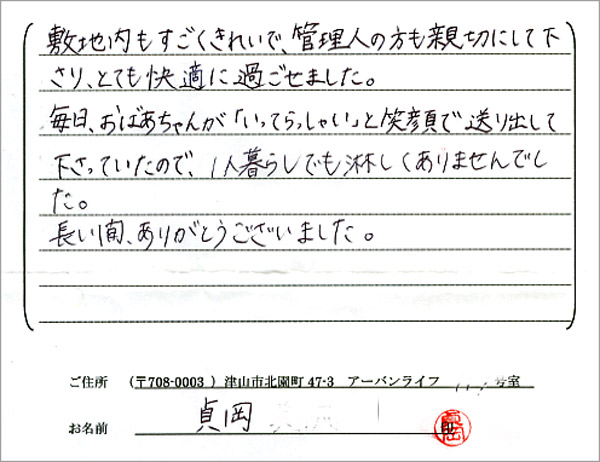 敷地内もすごくきれいで、管理人の方も親切にして下
さり、とても快適に過ごせました。
毎日、おばあちゃんが「いってらっしゃい」と笑顔で送り出して
下さっていたので、1人暮らしでも淋しくありませんでし
た。
長い間、ありがとうございました。
ご住所 (〒708-0003 ) 津山市北園町 47-3 アーバンライフ 号室
お名前 貞岡 印